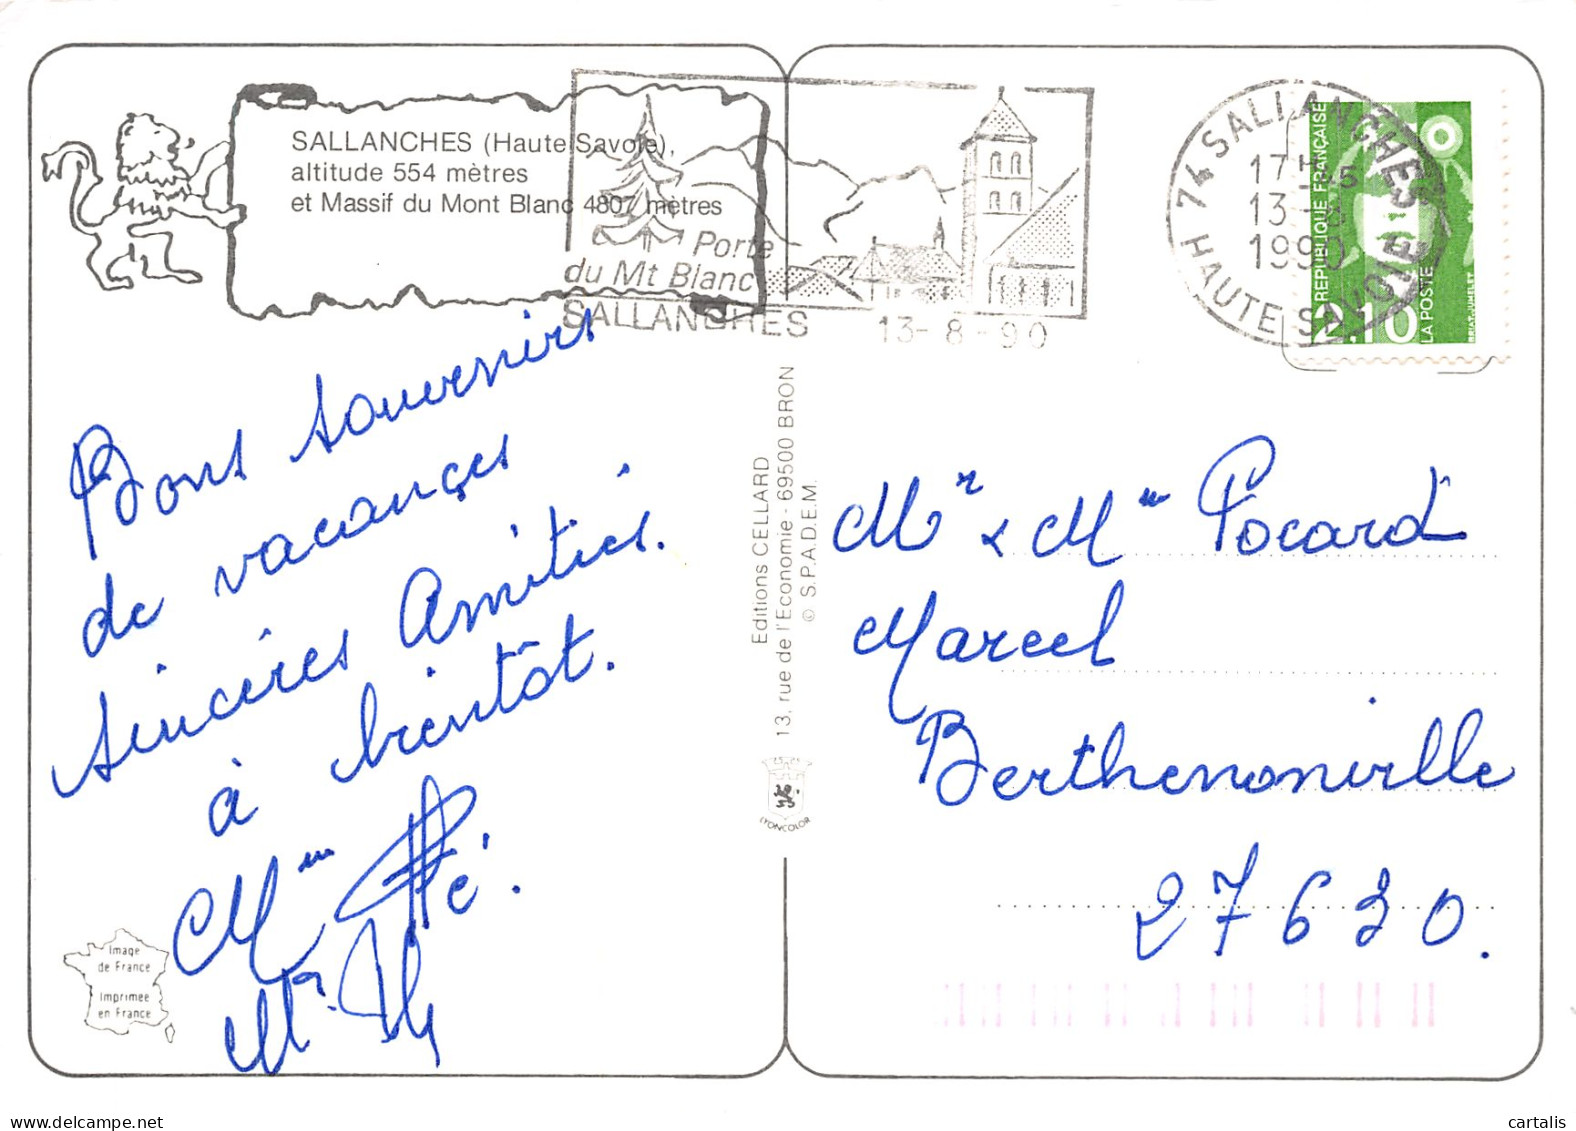 SALLANCHES (Haute Savoie),
altitude 554 mètres
et Massif du Mont Blanc 4807 mètres
Porte
du Mt Blanc
SALLANCHES 13-8-90
74 SALLANCHES
17H 45
13-8
1990
HAUTE SAVOIE
REPUBLIQUE FRANÇAISE
2,10
LA POSTE
BRIAT-JUMELET
Bons souvenirs
de vacances
sincères Amitiés.
à bientôt.
Mme
Mr
Editions CELLARD
13, rue de l'Economie - 69500 BRON
© S.P.A.D.E.M.
LYONCOLOR
Mr & Mme Pocard
Marcel
Berthenonville
27630.
Image
de France
Imprimée
en France
cartalis